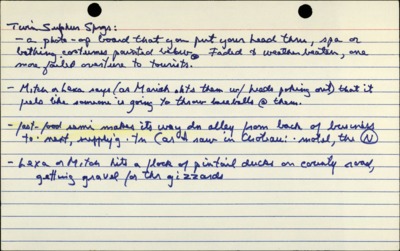 Twin Sulphur Spgs:
- a photo-op board that you put your head thru, spa or
bathing costumes painted below. Faded & weatherbeaten, one
more failed overture to tourists.
- Mitch or Lexa says (as Mariah shts them w/ heads poking out) that it
feels like someone's going to throw baseballs @ them.
- fast-food semi makes its way dn alley from back of
to next, supply'g. (as I saw in Choteau: motel, the N
- Lexa or Mitch hits a flock of pintail ducks on county road,
getting gravel for thr gizzards